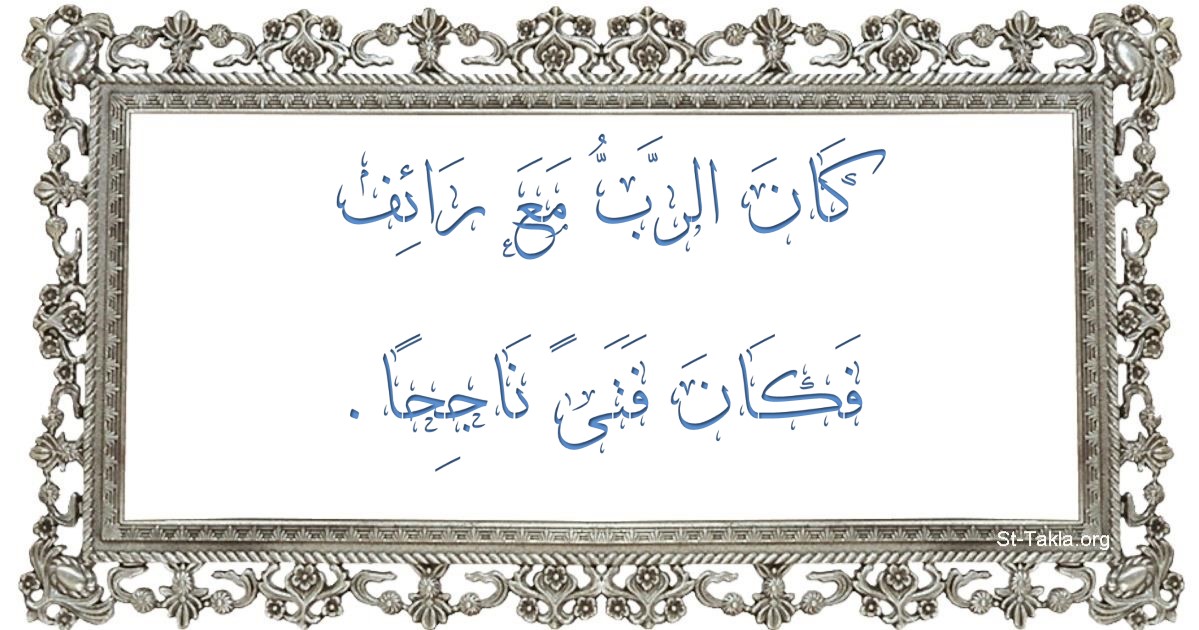 كَانَ الرَّبُّ مَعَ رَائِف
فَكَانَ فَتَىً نَاجِحًا .
St-Takla.org